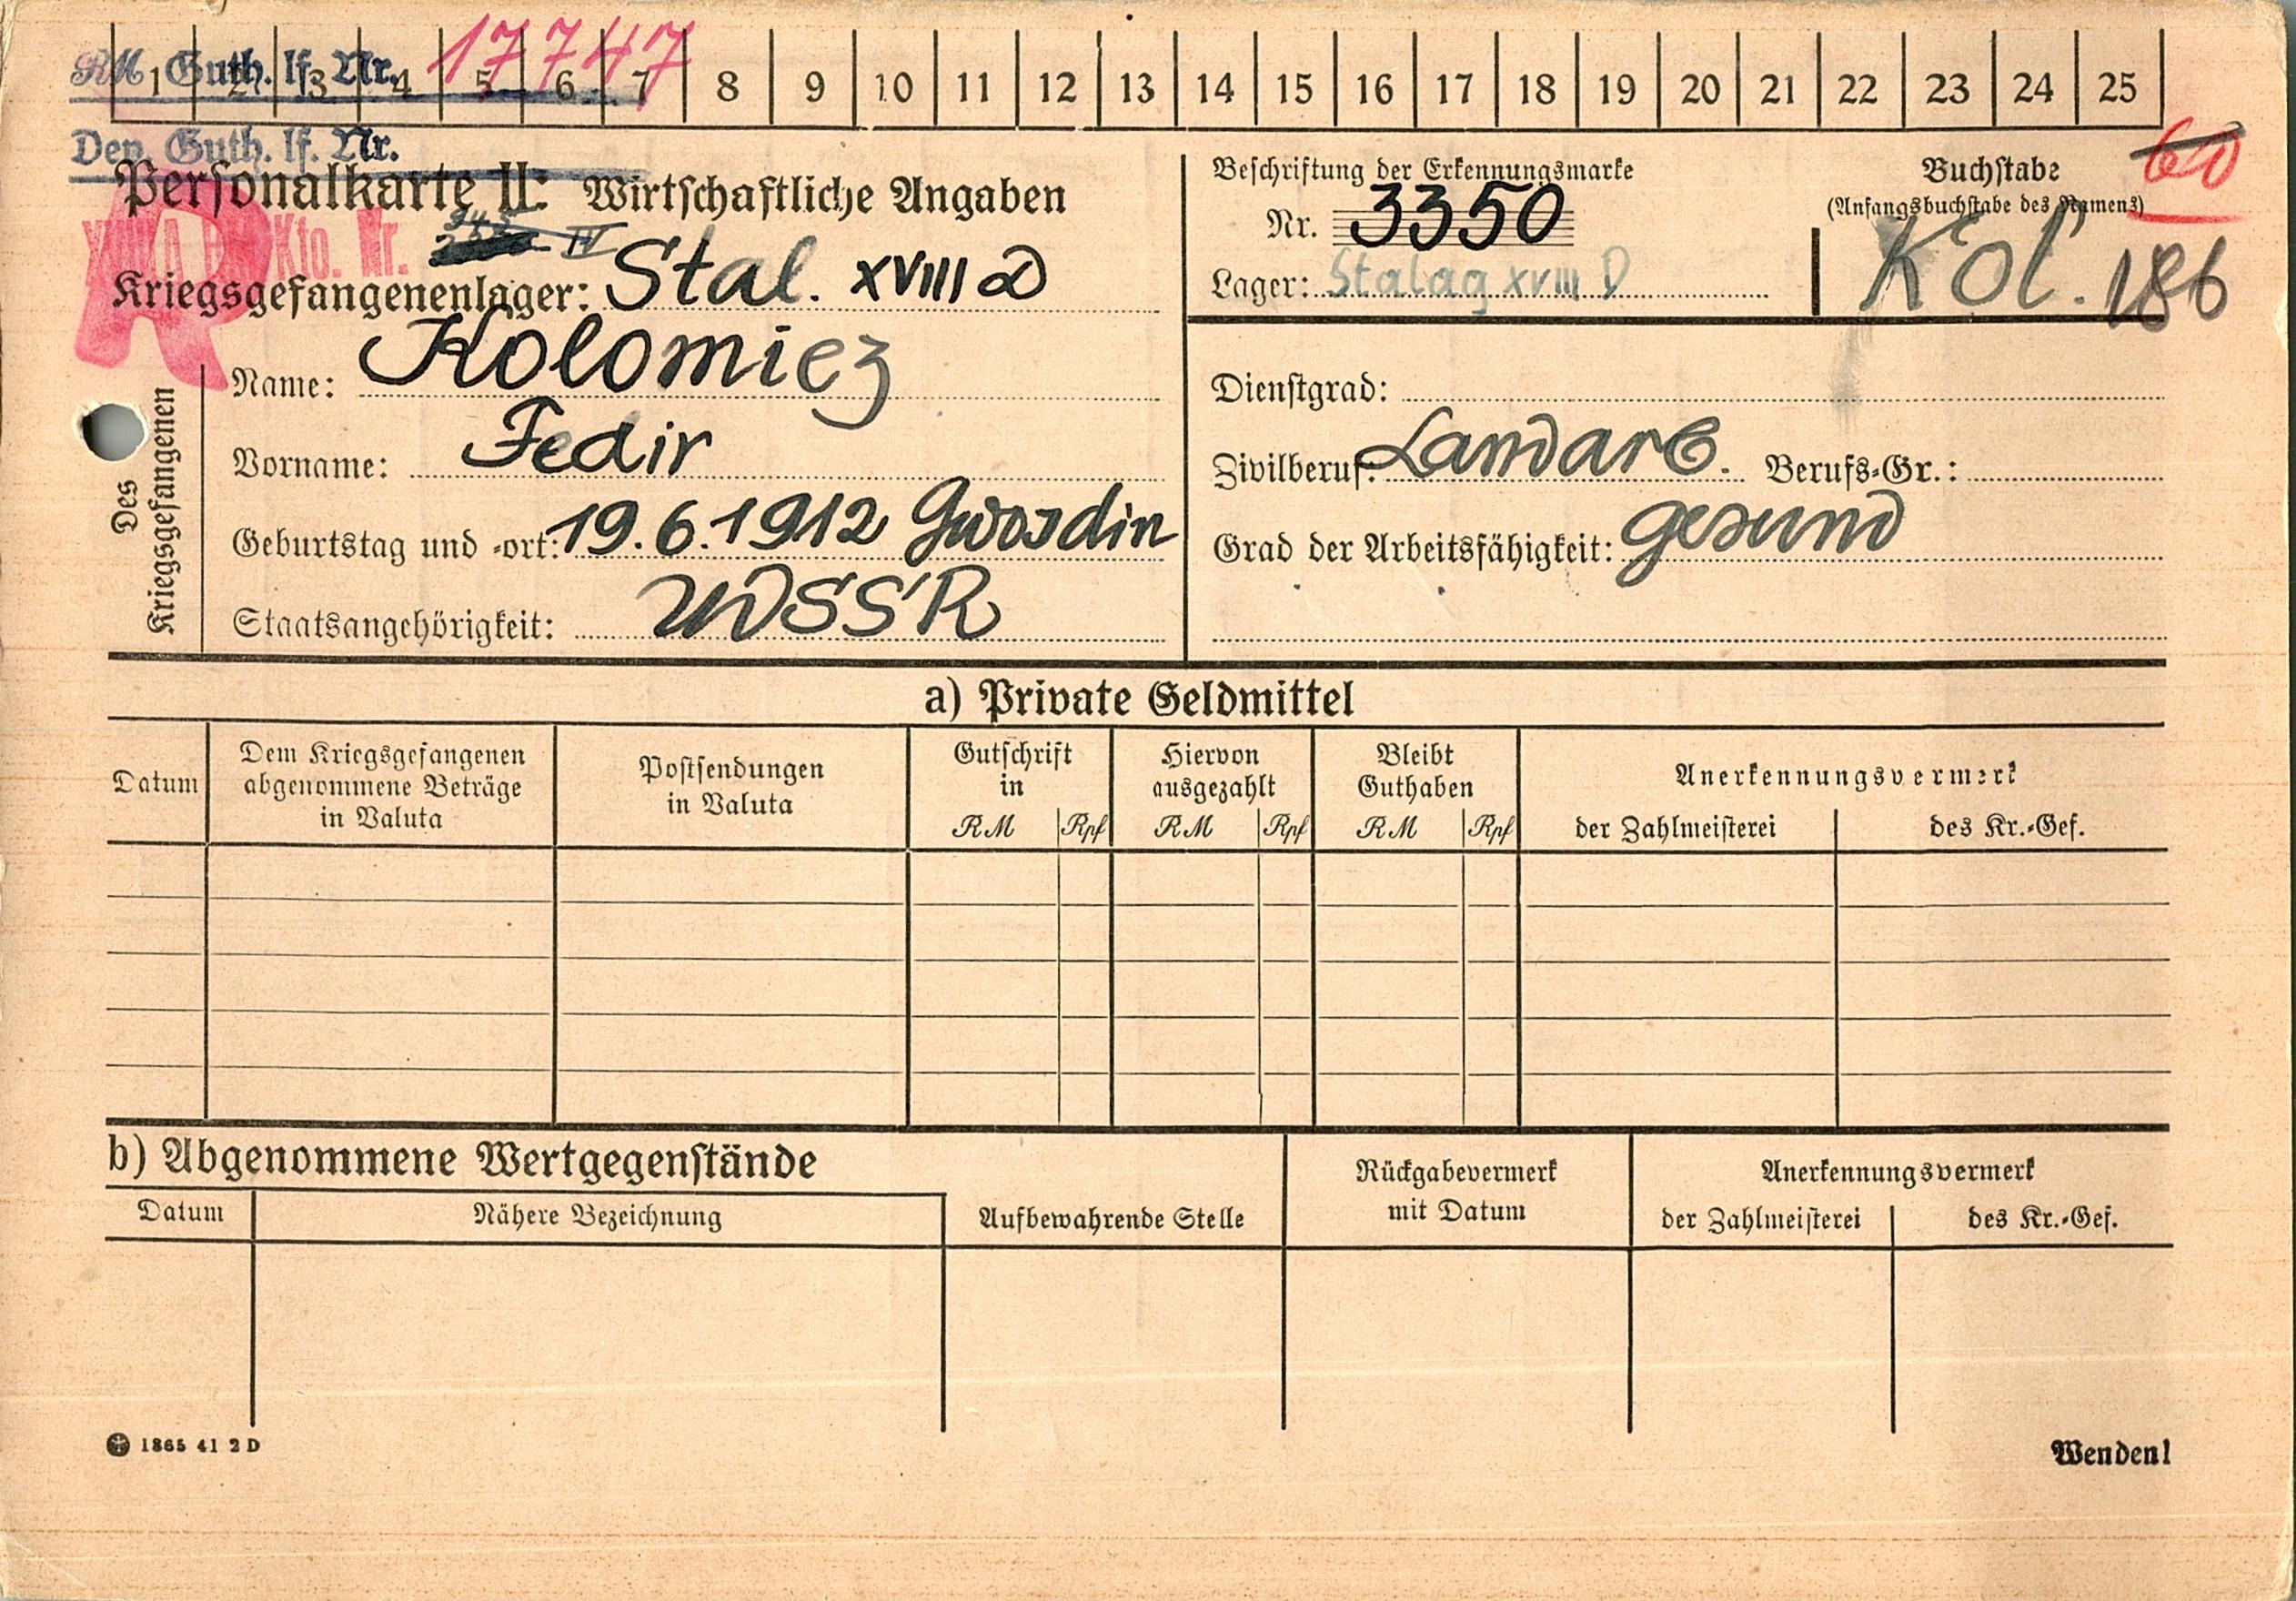 1 2 3 4 5 6 7 8 9 10 11 12 13 14 15 16 17 18 19 20 21 22 23 24 25
RM Guth. lf. Nr. 17747
Dep. Guth. lf. Nr.
60
Personalkarte II: Wirtschaftliche Angaben
Kto. Nr. IV
R
Kriegsgefangenenlager: Stal. XVIII D
Beschriftung der Erkennungsmarke
Nr. 3350
Lager: Stalag XVIII D
Buchstabe
(Anfangsbuchstabe des Namens)
Kol. 186
Des Kriegsgefangenen
Name: Kolomiez
Vorname: Fedir
Geburtstag und -ort: 19.6.1912 Gwosdin
Staatsangehörigkeit: UDSSR
Dienstgrad:
Zivilberuf: Landarb. Berufs-Gr.:
Grad der Arbeitsfähigkeit: gesund
a) Private Geldmittel
Datum
Dem Kriegsgefangenen
abgenommene Beträge
in Valuta
Postsendungen
in Valuta
Gutschrift
in
RM Rpf
Hiervon
ausgezahlt
RM Rpf
Bleibt
Guthaben
RM Rpf
Anerkennungsvermerk
der Zahlmeisterei des Kr.-Gef.
b) Abgenommene Wertgegenstände
Datum Nähere Bezeichnung
Aufbewahrende Stelle
Rückgabevermerk
mit Datum
Anerkennungsvermerk
der Zahlmeisterei des Kr.-Gef.
1865 41 2 D
Wenden!